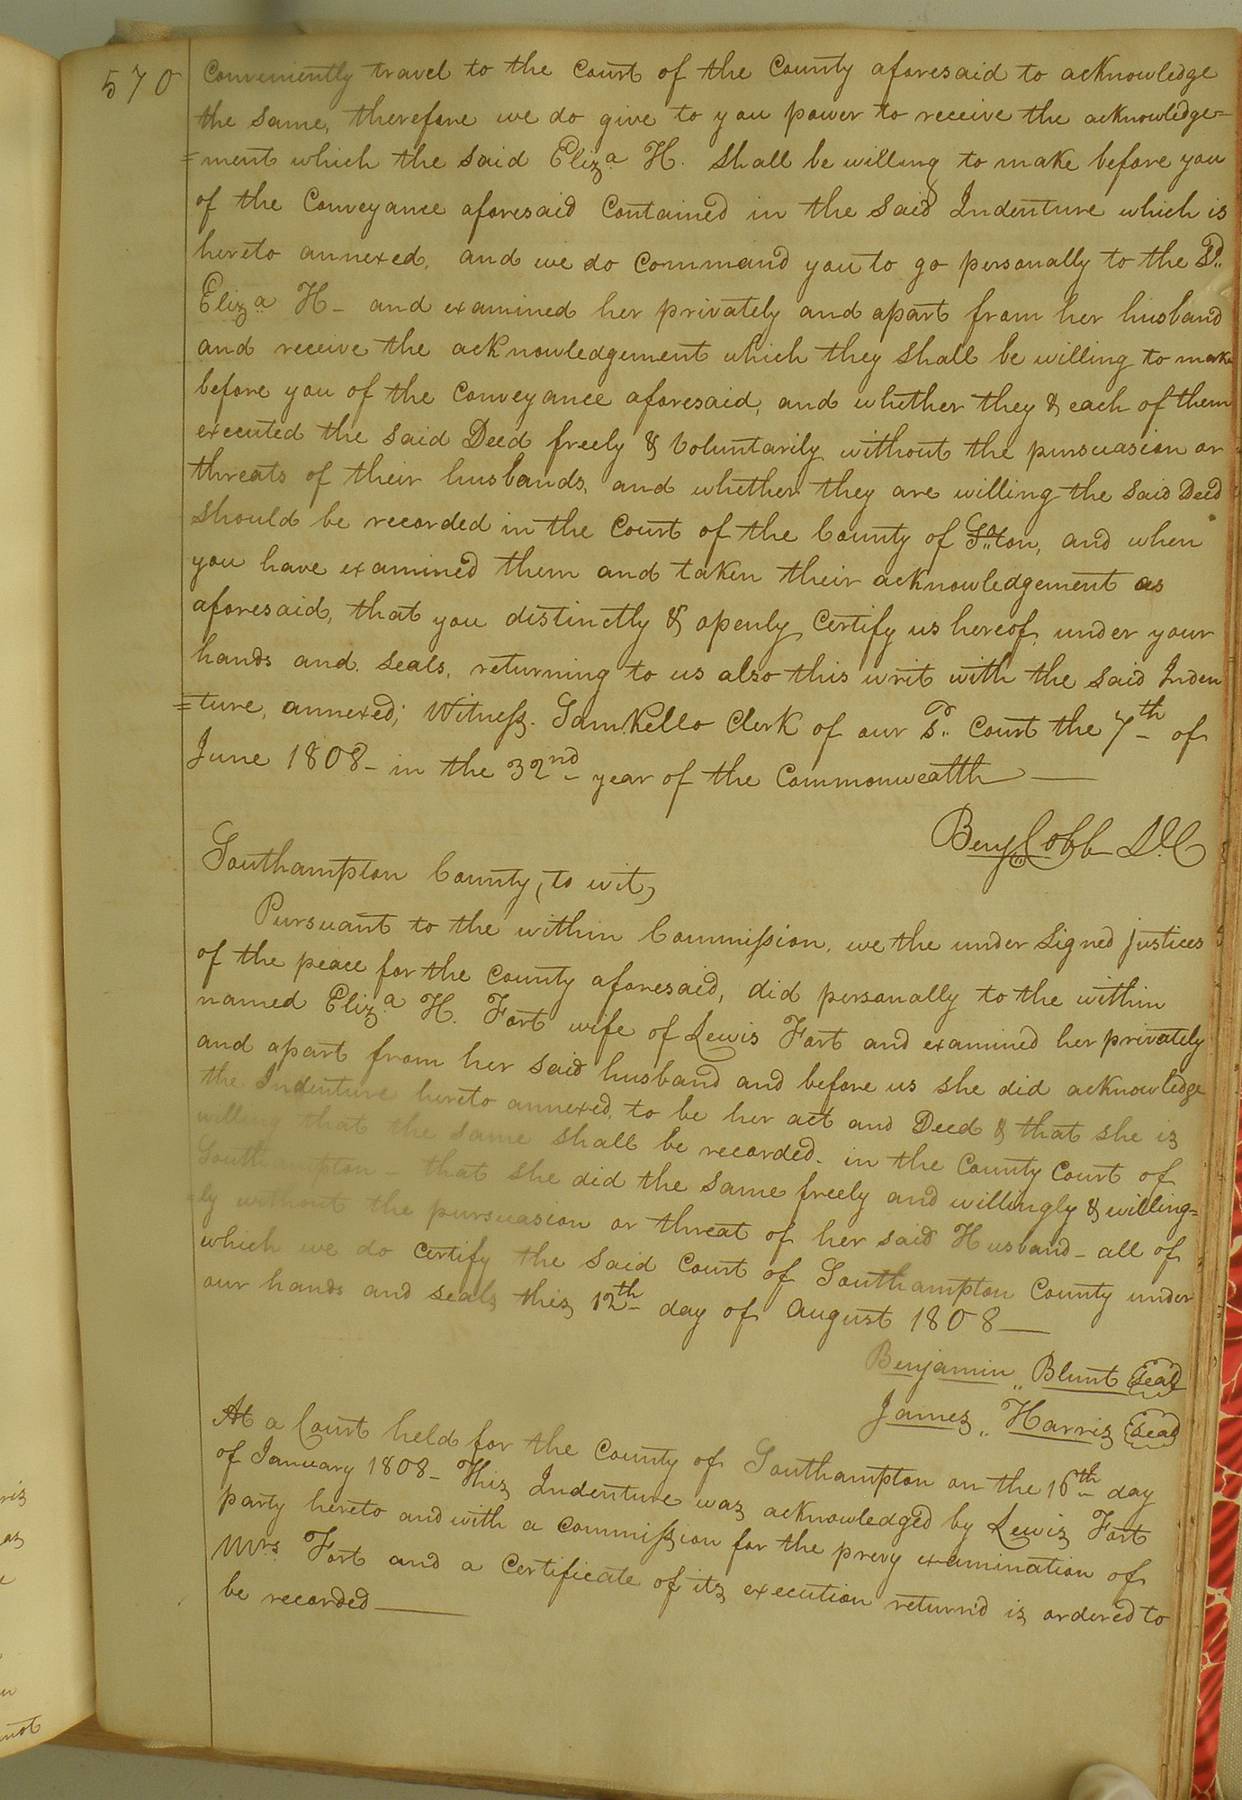 570
Conveniently travel to the Court of the County aforesaid to acknowledge
the Same, therefore we do give to you power to receive the acknowledge=
=ment which the said Eliza H. Shall be willing to make before you
of the Conveyance aforesaid Contained in the Said Indenture which is
hereto annexed, and we do Command you to go personally to the Sd..
Eliza H - and examined her privately and apart from her husband
and receive the acknowledgement which they shall be willing to make
before you of the Conveyance aforesaid, and whether they & each of them
executed the said Deed freely & Voluntarily without the pursuasion or
threats of their husbands, and whether they are willing the Said Deed
Should be recorded in the Court of the County of S..ton, and when
you have examined them and taken their acknowledgement as
aforesaid, that you distinctly & openly Certify us hereof, under your
hands and Seals, returning to us also this writ with the Said Inden
=ture, annexed; Witness. Saml. Kello Clerk of our Sd.. Court the 7th of
June 1808 - in the 32nd year of the Commonwealth
Benj Cobb D.C
Southampton County, to wit,
Pursuant to the within Commission, we the under Signed justices
of the peace for the County aforesaid, did personally to the within
named Eliza H. Fort wife of Lewis Fort and examined her privately
and apart from her said husband and before us she did acknowledge
the Indenture hereto annexed, to be her act and Deed & that she is
willing that the same shall be recorded. in the County Court of
Southampton - that she did the same freely and willingly & willing=
=ly without the pursuasion or threat of her said Husband - all of
which we do certify the Said Court of Southampton County under
our hands and seals this 12th day of August 1808
Benjamin ,, Blunt Seal
James ,, Harris Seal
At a Court held for the County of Southampton on the 16th day
of January 1808 - This Indenture was acknowledged by Lewis Fort
party hereto and with a commission for the prevy examination of
Mrs. Fort and a Certificate of its execution return'd is ordered to
be recorded